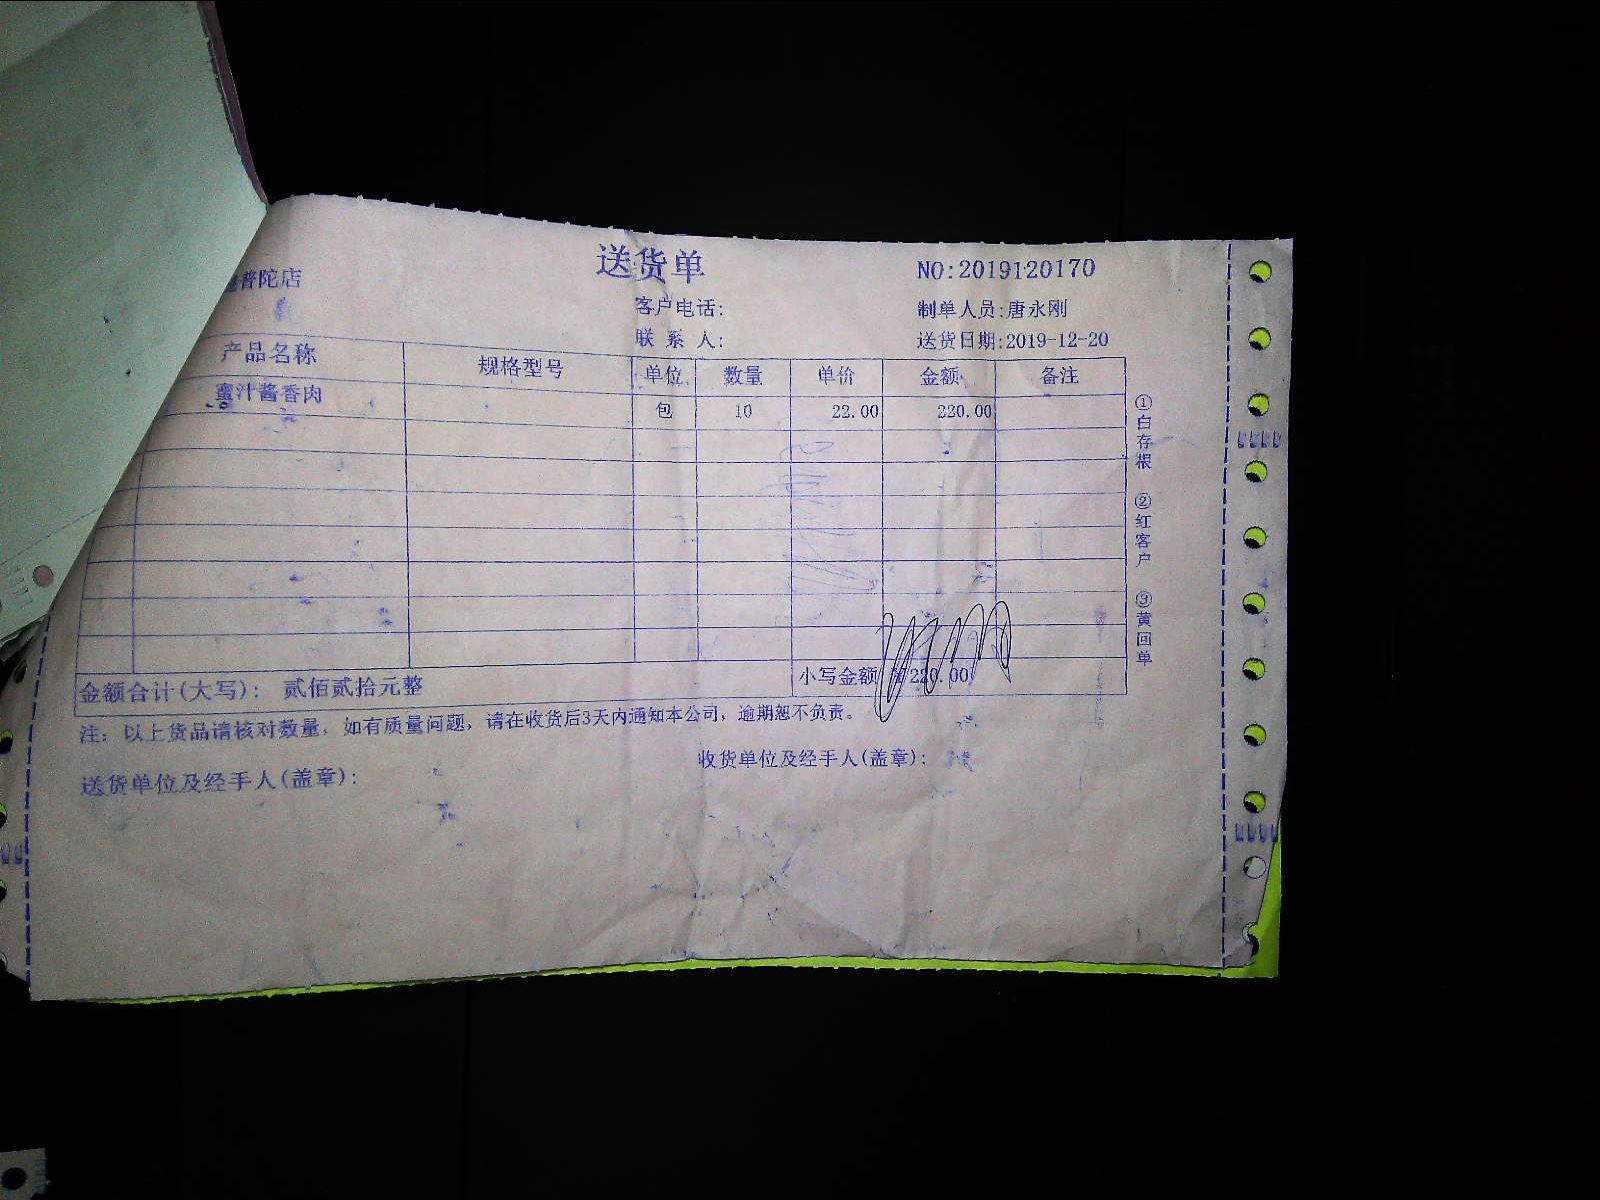 送货单
NO:2019120170
普陀店
客户电话:
制单人员:唐永刚
联系人:
送货日期:2019-12-20
产品名称 规格型号 单位 数量 单价 金额 备注
蜜汁酱香肉 包 10 22.00 220.00
①白存根 ②红客户 ③黄回单
小写金额 ¥220.00
金额合计(大写): 贰佰贰拾元整
注: 以上货品请核对数量, 如有质量问题, 请在收货后3天内通知本公司, 逾期恕不负责。
收货单位及经手人(盖章):
送货单位及经手人(盖章):